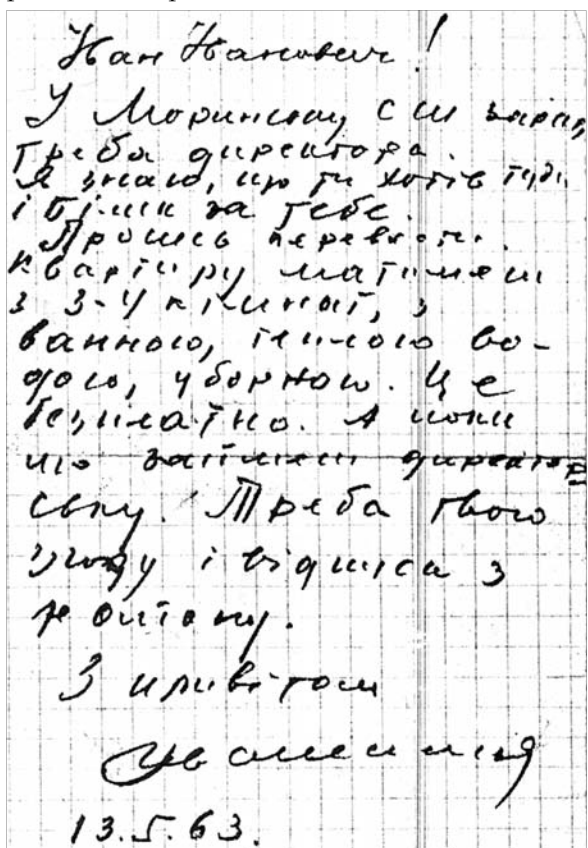 Іван Іванович!
У Моринську с ш зараз
треба директора.
Я знаю, що ти хотів туди
і більш за тебе.
Прошусь перевести.
Квартиру матимеш
з 3-4 кімнат, з
ванною, теплою во-
дою, уборною. Це
безплатно. А поки
що займеш директор
ську. Треба твою
згоду і відписка з
району.
З привітом
13.5.63.